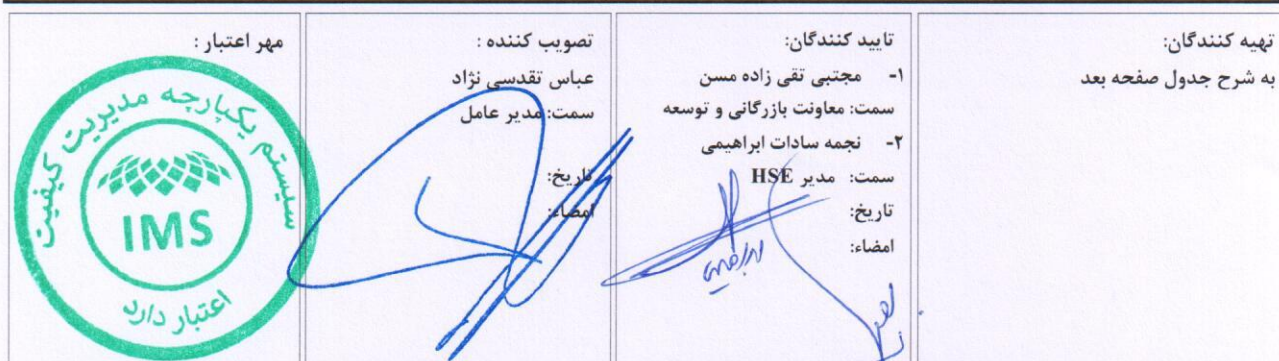 تهیه کنندگان:
به شرح جدول صفحه بعد
تایید کنندگان:
۱- مجتبی تقی زاده مسن
سمت: معاونت بازرگانی و توسعه
۲- نجمه سادات ابراهیمی
سمت: مدیر HSE
تاریخ:
امضاء:
تصویب کننده :
عباس تقدسی نژاد
سمت: مدیر عامل
تاریخ:
امضاء:
مهر اعتبار :
سیستم یکپارچه مدیریت کیفیت
IMS
اعتبار دارد